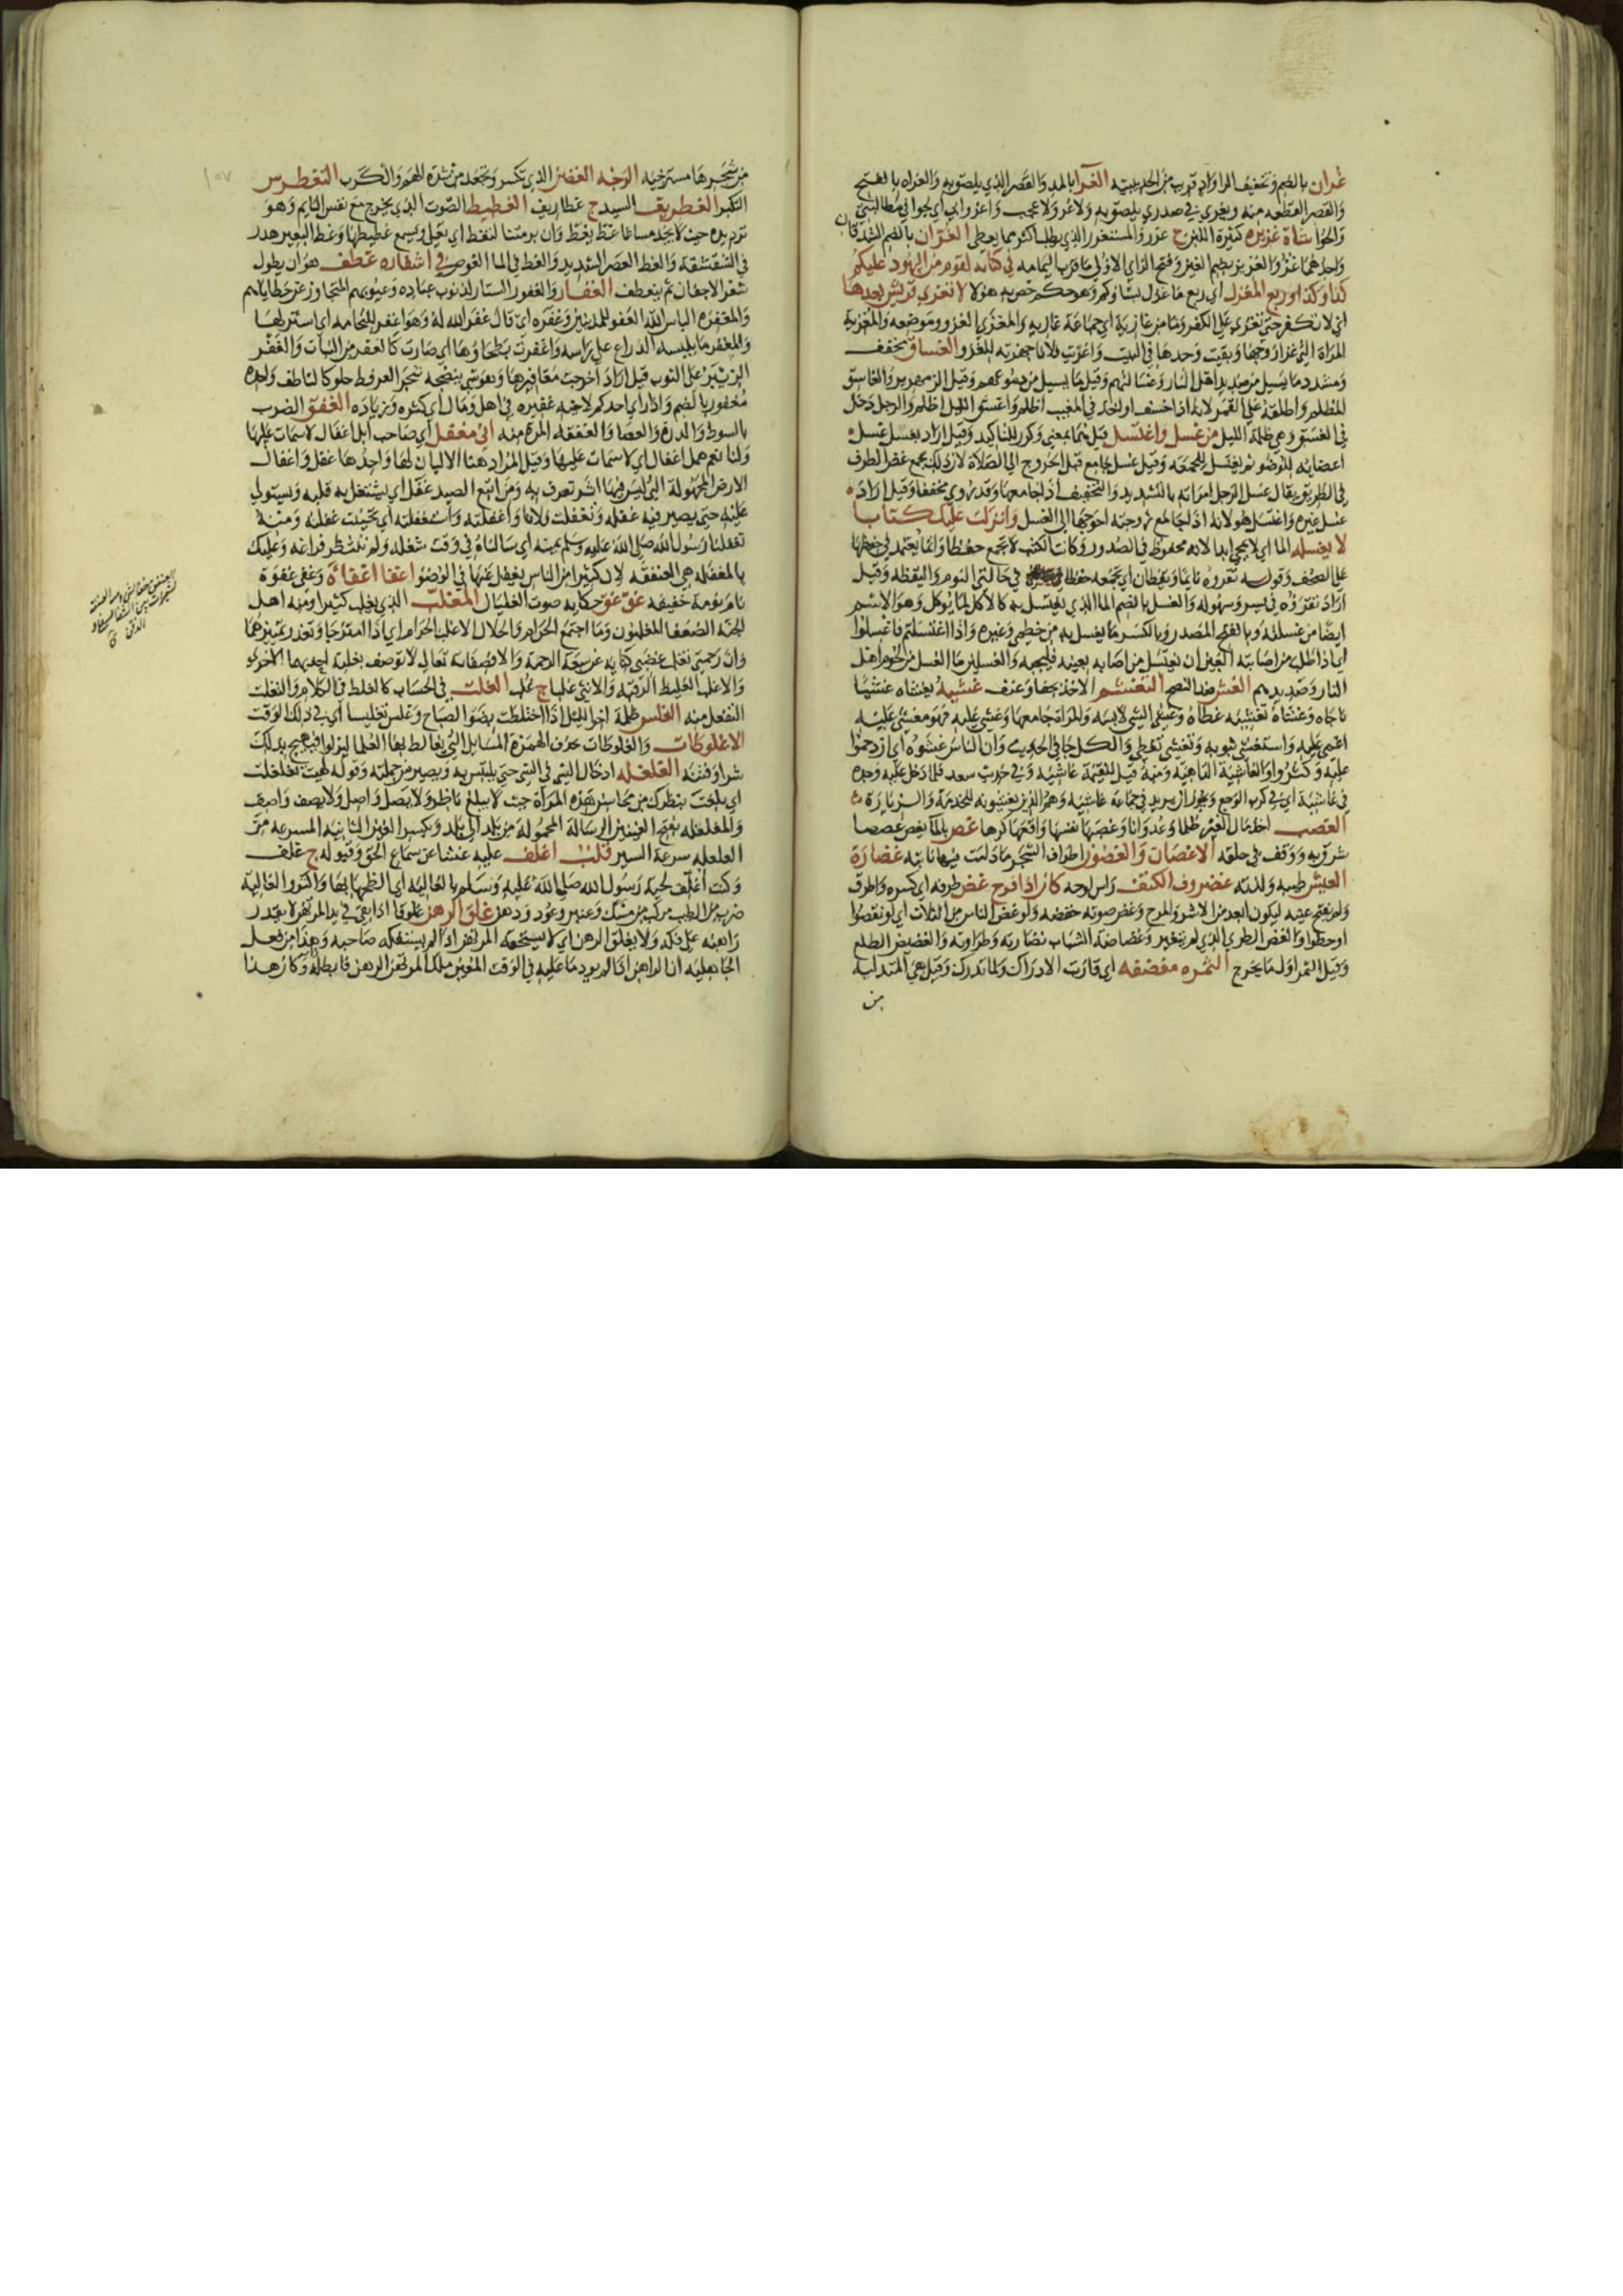 غُران بالضم وتخفيف الراء واد قريب من الحديبية الغرا بالمد والقصر الذي يلصق به والغراه بالفتح
والقصر القطعه منه ويغري في صدري يلصق به ولا غرو ولا عجب
شاة غزيره كثيرة اللبن ج غزر والمستغزر الذي يطلب اكثر مما يعطي الغزان بالضم الشدقان
واحدهما غز والغزيز بضم الغين وفتح الزاي الاولى ماء قرب اليمامه في كتابه لقوم من اليهود عليكم
كذا وكذا وربع المغزل اي ربع ما غزل نساؤكم وهو حكم خص به هولا لا تغزى قريش بعدها
اي لا تكفر حتى تغزى على الكفر وما من غازية اي جماعة غازيه والمغزى الغزو وموضعه والمغزية
المراة التي غزا زوجها وبقيت وحدها في البيت واغزيت فلانا جهزته للغزو الغساق بخفف
ومشدد ما يسيل من صديد اهل النار وغسالتهم وقيل ما يسيل من دموعهم وقيل الزمهرير والغاسق
المظلم واطلقه على القمر لانه اذا خسف او اخذ في المغيب اظلم واغسق الليل اظلم والرجل دخل
في الغسق وهي ظلمة الليل من غسل واغتسل قيل هما بمعنى وكرر للتاكيد وقيل اراد بغسل غسل
اعضايه للوضوء ثم يغتسل للجمعه وقيل غسل جامع قبل الخروج الى الصلاة لان ذلك يجمع غض الطرف
في الطريق يقال غسل الرجل امراته بالتشديد والتخفيف اذا جامعها وقد روي مخففا وقيل اراد
غسل غيره واغتسل هو لانه اذا جامع زوجته احوجها الى الغسل وانزلت عليك كتابا
لا يغسله الما اي لا يمحى ابدا لانه محفوظ في الصدور وكانت الكتب لا تجمع حفظا وانما يعتمد في حفظها
على الصحف وقوله تقروه نايما ويقظان اي تجمعه حفظا في حالتي النوم واليقظه وقيل
اراد تقرؤه في يسر وسهوله والغسل بالضم الما الذي يغتسل به كالاكل لما يوكل وهو الاسم
ايضا من غسلته وبالفتح المصدر وبالكسر ما يغسل به من خطمي وغيره واذا اغتسلتم فاغسلوا
اي اذا طلب من اصابته العين ان يغتسل من اصابه بعينه فليجبه والغسلين ما انغسل من لحوم اهل
النار وصديدهم الغش ضد النصح التغشمر الاخذ بجفا وعنف غشيه يغشاه غشيا
جاه وغشاه تغشيه غطاه وغشي الشي لابسه والمراة جامعها وغشي عليه فهو مغشي عليه
اغمي عليه واستغشى بثوبه وتغشى تغطى والكل جا في الحديث وان الناس غشوه اي ازدحموا
عليه وكثروا والغاشية الداهية ومنه قيل للقيمة غاشية وفي حديث سعد فلما دخل عليه وجده
في غاشية اي في كرب الوجع ويجوز ان يريد في جماعة غاشية وهم الذين يغشونه للخدمة والزيارة
الغصب اخذ مال الغير ظلما وعدوانا وغصبها نفسها واقعها كرها غص بالما يغص غصصا
شرق به ووقف في حلقه الاغصان والغصون اطراف الشجر ما دامت فيها نابته غضارة
العيش طيبه ولذته غضروف الكتف راس لوحه كان اذا فرح غض طرفه اي كسره واطرق
ولم يفتح عينه ليكون ابعد من الاشر والمرح وغض صوته خفضه ولو غض الناس من الثلث اي لو نقصوا
او حطوا والغض الطري الذي لم يتغير وغضاضة الشباب نضارته وطراوته والغضيض الطلع
وقيل الثمر اول ما يخرج الثمره مغضفه اي قاربت الادراك ولما تدرك وقيل هي المتدلية
من
١٥٧
من شجرها مسترخيه الوجه الغضن الذي تكسر وتجعد من شدة الهم والكرب التغطرس
التكبر الغطريف السيد ج غطاريف الغطيط الصوت الذي يخرج مع نفس النايم وهو
ترديده حيث لا يجد مساغا غط يغط وان برمتنا لتغط اي تغلي ويسمع غطيطها وغط البعير هدر
في الشقشقة والغط العصر الشديد والغط في الما الغوص في اشفاره غطف هو ان يطول
شعر الاجفان ثم ينعطف الغفار والغفور الستار لذنوب عباده وعيوبهم المتجاوز عن خطاياهم
والمغفره الباس الله العفو للمذنبين وغفره اي قال غفر الله له وهو اغفر للنخامه اي استر لها
والمغفر ما يلبسه الدراع على راسه واغفرت بطحاؤها اي صارت كالغفر من النبات والغفر
الزئبر على الثوب قيل اراد اخرجت مغافيرها وهو شي ينضحه شجر العرفط حلو كالناطف واحده
مغفور بالضم واذا راي احدكم لاخيه غفيره في اهل ومال اي كثره وزياده الغفق الضرب
بالسوط والدرة والعصا والغفقه المرة منه اني مغفل اي صاحب ابل اغفال لا سمات عليها
ولنا نعم همل اغفال اي لا سمات عليها وقيل المراد هنا الالبان لها واحدها غفل واغفال
الارض المجهولة التي ليس فيها اثر تعرف به ومن اتبع الصيد غفل اي يشتغل به قلبه ويستولي
عليه حتى يصير فيه غفله وتغفلت فلانا واغفلته واستغفلته اي تحينت غفلته ومنه
تغفلنا رسول الله صلى الله عليه وسلم يمينه اي سالناه في وقت شغله ولم ننتظر فراغه وعليك
بالمغفله هي العنفقه لان كثيرا من الناس يغفل عنها في الوضوء اغفا اغفاة وغفى غفوة
نام نومة خفيفه غق غق حكايه صوت الغليان المغلب الذي يغلب كثيرا ومنه اهل
الجنة الضعفا المغلبون وما اجتمع الحرام والحلال الا غلب الحرام اي اذا امتزجا وتعذر تمييزهما
وان رحمتي تغلب غضبي كنايه عن سعة الرحمة والا فصفاته تعالى لا توصف بغلبة احديهما الاخرى
والاغلب الغليظ الرقبة والانثى غلبا ج غلب الغلت في الحساب كالغلط في الكلام والتغلت
التفعل منه الغلس ظلمة اخر الليل اذا اختلطت بضوء الصباح وغلس تغليسا اي في ذلك الوقت
الاغلوطات والغلوطات بحذف الهمزة المسايل التي يغالط بها العلما ليزلوا فيهيج بذلك
شر وفتنه الغلغله ادخال الشي في الشي حتى يلتبس به ويصير من جملته وقوله لهيت تغلغلت
اي بلغت بنظرك من محاسن هذه المراة حيث لا يبلغ ناظر ولا يصل واصل ولا يصف واصف
والمغلغله بفتح الغينين الرسالة المحمولة من بلد الى بلد وبكسر الغين الثانيه المسرعه من
الغلغله سرعة السير قلب اغلف عليه غشا عن سماع الحق وقبوله ج غلف
وكنت اغلف لحية رسول الله صلى الله عليه وسلم بالغاليه اي الطخها بها واكثر والغاليه
ضرب من الطيب مركب من مسك وعنبر وعود ودهن غلق الرهن غلوقا اذا بقي في يد المرتهن لا يقدر
راهنه على فكه ولا يغلق الرهن اي لا يستحقه المرتهن اذا لم يستفكه صاحبه وهذا من فعل
الجاهليه ان الراهن اذا لم يود ما عليه في الوقت المعين ملك المرتهن الرهن فابطله وكان هذا